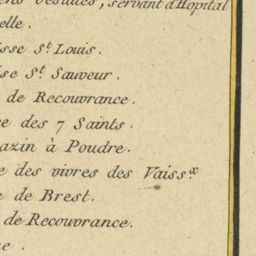 ens Jésuites, servant d'Hôpital
elle.
isse S.t Louis.
ise S.t Sauveur.
de Recouvrance.
e des 7 Saints.
azin à Poudre.
e des vivres des Vaiss.x
e de Brest.
de Recouvrance.
ue.